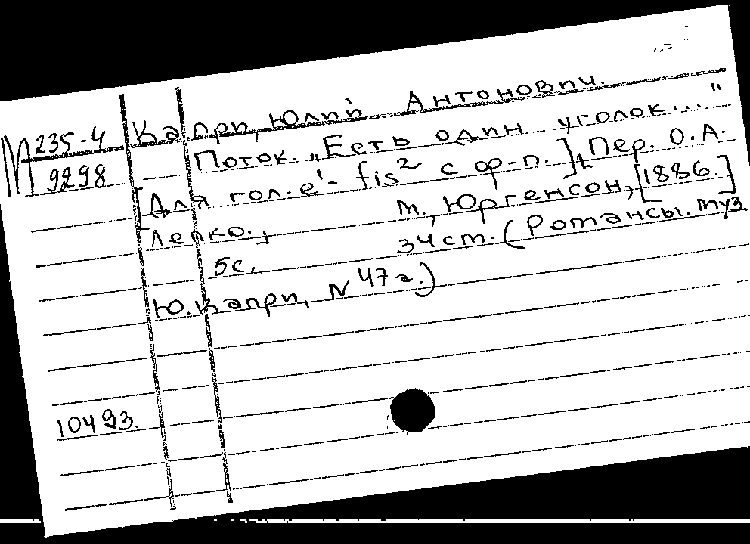 М 235-4
9298
Капри, Юлий Антонович.
Поток. „Есть один уголок..."
[Для гол. e¹- fis² с ф-п.] Пер. О.А.
Лепко.,
м., Юргенсон, [1886.]
5с. 34 см. (Романсы. муз.
Ю. Капри, N 47а.)
10493